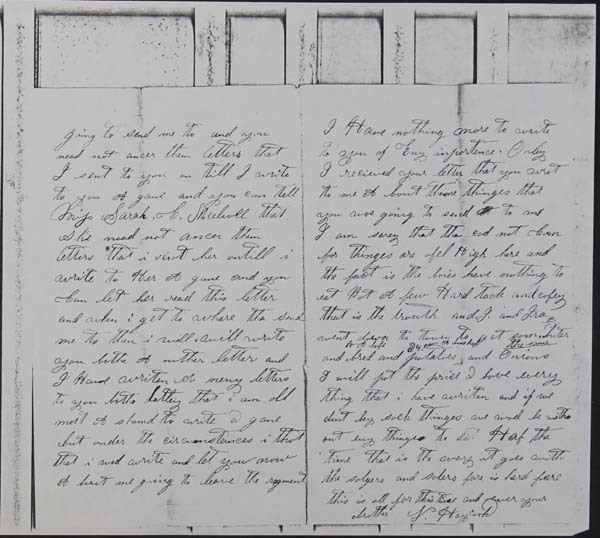 going to send me to and you
nead not ancer them letters that
I sent to you on till I write
to you A gane and you can tell
Sarah that
She nead not ancer them
letters that i sent her ontill i
write to Her A gane and you
Can let her read this letter
and when i get to where tha send
me to then i will write
you bothe A nuther letter and
I Have writen So meny letters
to you bothe that i am old
most A shamd to write a gane
but under the circumstances i thot
that i wod write and let you now
A bout me going to leave the regment
I Have nothing more to write
to you of Eny importence. Only
I recieved your letter that you wrot
to me A bout those thinges that
you was going to send to me
I am sorey that tha cod not Com
for thinges are High here and
the fact is the boies have nothing to
eat But A few Hard tack and cofey
that is the trouth and I and
went down to town to get
and bred and potatoes and Onions
I will put the price A bove every
thing that i have writen and if we
dont by such thinges we wod be witho
out eny thinges to Haf the
time that is the way it goes with
the solgers and solers fare is hard fare
this is all for this time and your
brother N.